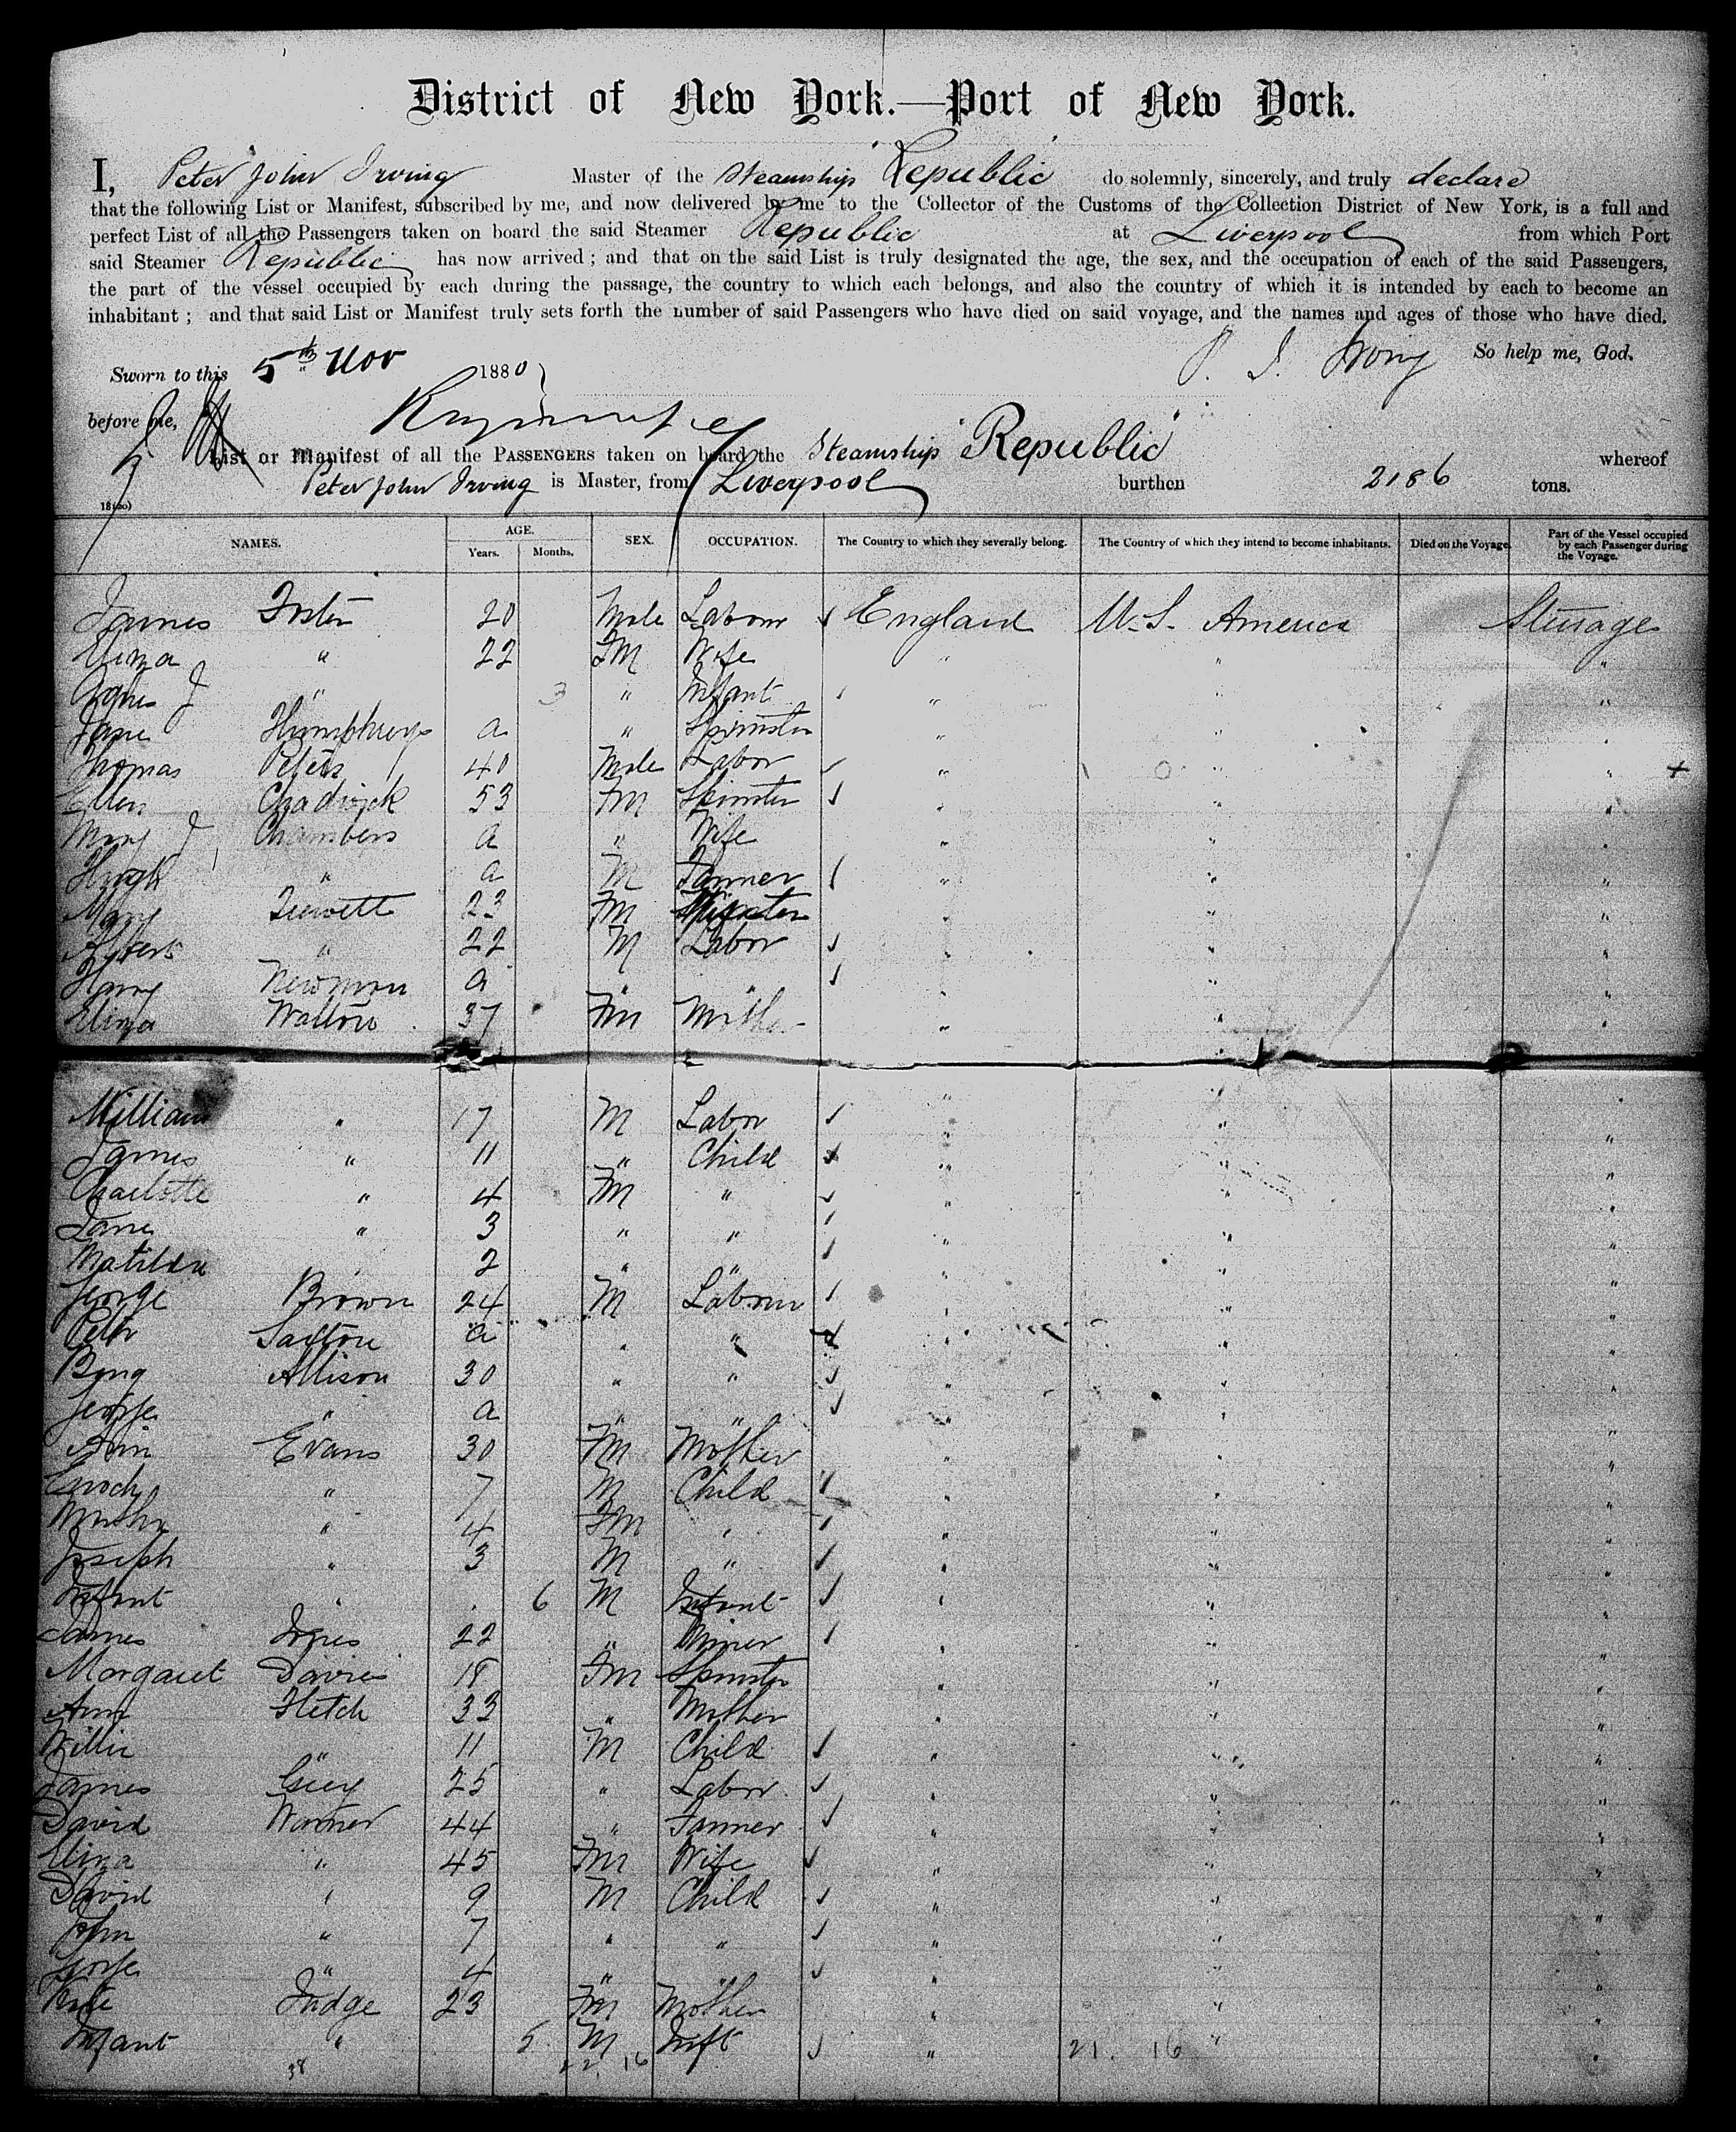 District of New York.—Port of New York.
I, Peter John Irving Master of the Steamship Republic do solemnly, sincerely, and truly declare
that the following List or Manifest, subscribed by me, and now delivered by me to the Collector of the Customs of the Collection District of New York, is a full and
perfect List of all the Passengers taken on board the said Steamer Republic at Liverpool from which Port
said Steamer Republic has now arrived; and that on the said List is truly designated the age, the sex, and the occupation of each of the said Passengers,
the part of the vessel occupied by each during the passage, the country to which each belongs, and also the country of which it is intended by each to become an
inhabitant; and that said List or Manifest truly sets forth the number of said Passengers who have died on said voyage, and the names and ages of those who have died.
P. J. Irving So help me, God.
Sworn to this 5th Nov 1880
before me,
List or Manifest of all the PASSENGERS taken on board the Steamship "Republic" whereof
Peter John Irving is Master, from Liverpool burthen 2186 tons.
NAMES. AGE. Years. Months. SEX. OCCUPATION. The Country to which they severally belong. The Country of which they intend to become inhabitants. Died on the Voyage. Part of the Vessel occupied by each Passenger during the Voyage.
James 20 Male Labour England U.S. America Steerage
Eliza " 22 Fm Wife " " "
Agnes J " 3 " Infant " " "
Jane Humphreys a " Spinster " " "
Thomas Peters 40 Male Labor " " +
Ellen Chadwick 53 Fm Spinster " " "
Mary J Chambers a " Wife " " "
Hugh " a M Farmer " " "
Mary 23 Fm " " "
Albert " 22 M Labor " " "
Harry Newman a " " " " "
Eliza Walton 37 Fm Mother " " "
William " 17 M Labor " " "
James " 11 " Child " " "
Charlotte " 4 Fm " " " "
Jane " 3 " " " " "
Matilda " 2 " " " " "
George Brown 24 M Labour " " "
Petr a " " " " "
Benj Allison 30 " " " " "
George " a " " " " "
Ann Evans 30 Fm Mother " " "
Enoch " 7 M Child " " "
Martha " 4 Fm " " " "
Joseph " 3 M " " " "
Infant " 6 M Infant " " "
James 22 " Miner " " "
Margaret Davies 18 Fm Spinster " " "
Ann Fletch 33 " Mother " " "
Willie " 11 M Child " " "
James 25 " Labor " " "
David Warner 44 " Farmer " " "
Eliza " 45 Fm Wife " " "
David " 9 M Child " " "
John " 7 " " " " "
George " 4 " " " " "
Kate Judge 23 Fm Mother " " "
Infant " 5 M Inft " 21. 16 " "
38 22. 16